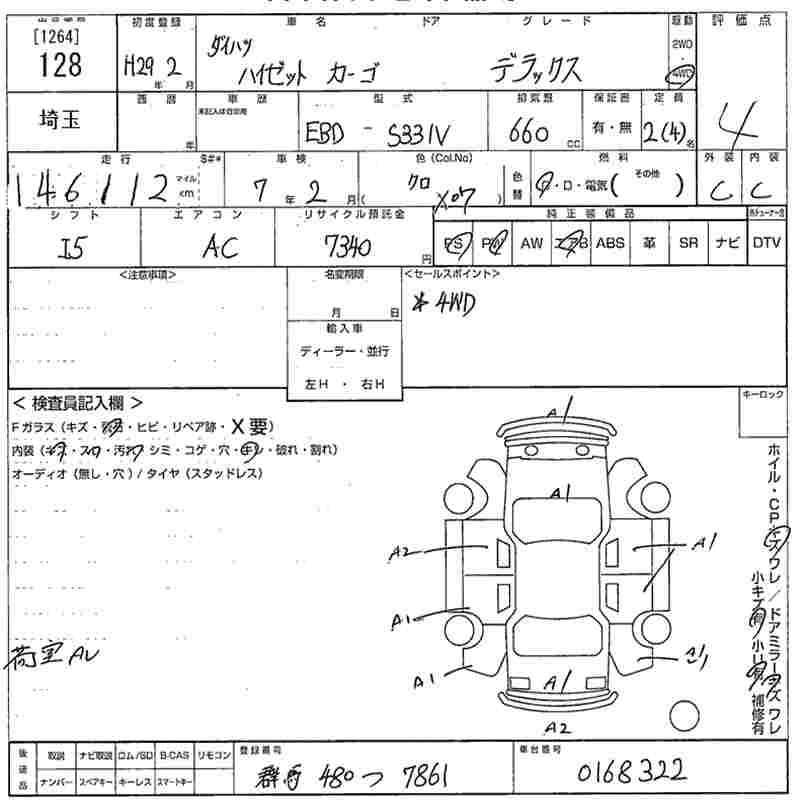 [1264]
128
初度登録
H29年 2月
車名
ダイハツ
ハイゼット カーゴ
ドア
グレード
デラックス
駆動
2WD
4WD
評価点
4
埼玉
西暦
年
車歴
未記入は自家用
型式
EBD - S331V
排気量
660 cc
保証書
有・無
定員
2(4)名
走行
146112
マイル
km
S#*
車検
7年 2月
色(Col.No)
クロ
( X07 )
色替
燃料
ガ・D・電気( その他 )
外装
C
内装
C
シフト
I5
エアコン
AC
リサイクル預託金
7340円
純正装備品
PS PW AW エアB ABS 革 SR ナビ DTV
<注意事項>
名変期限
月 日
輸入車
ディーラー・並行
左H ・ 右H
<セールスポイント>
* 4WD
< 検査員記入欄 >
Fガラス(キズ・ ・ヒビ・リペア跡・X要)
内装(キズ・スロ・汚れ シミ・コゲ・穴・キレ・破れ・割れ)
オーディオ(無し・穴)/タイヤ(スタッドレス)
キーロック
A1
A1
A2
A1
A1
A1
A1
A1
A2
荷室 AU
ホイル・CPキズワレ/ドアミラーキズワレ
小キズ有 小U有 補修有
後送品
取説 ナビ取説 ロム/SD B-CAS リモコン
ナンバー スペアキー キーレス スマートキー
登録番号
群馬 480 つ 7861
車台番号
0168322